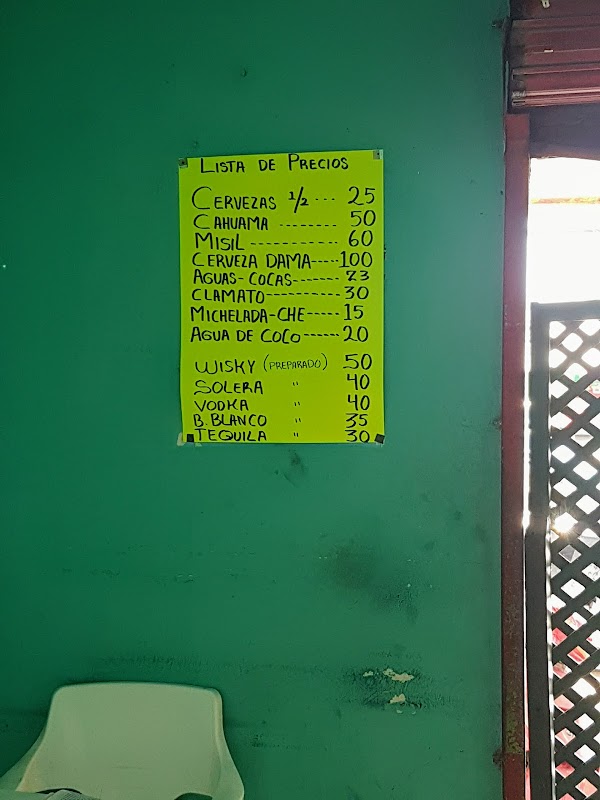 LISTA DE PRECIOS
CERVEZAS 1/2 ... 25
CAHUAMA -------- 50
MISIL ----------- 60
CERVEZA DAMA-----100
AGUAS-COCAS------- 23
CLAMATO---------- 30
MICHELADA-CHE----- 15
AGUA DE COCO------ 20
WISKY (PREPARADO) 50
SOLERA " 40
VODKA " 40
B. BLANCO " 35
TEQUILA " 30